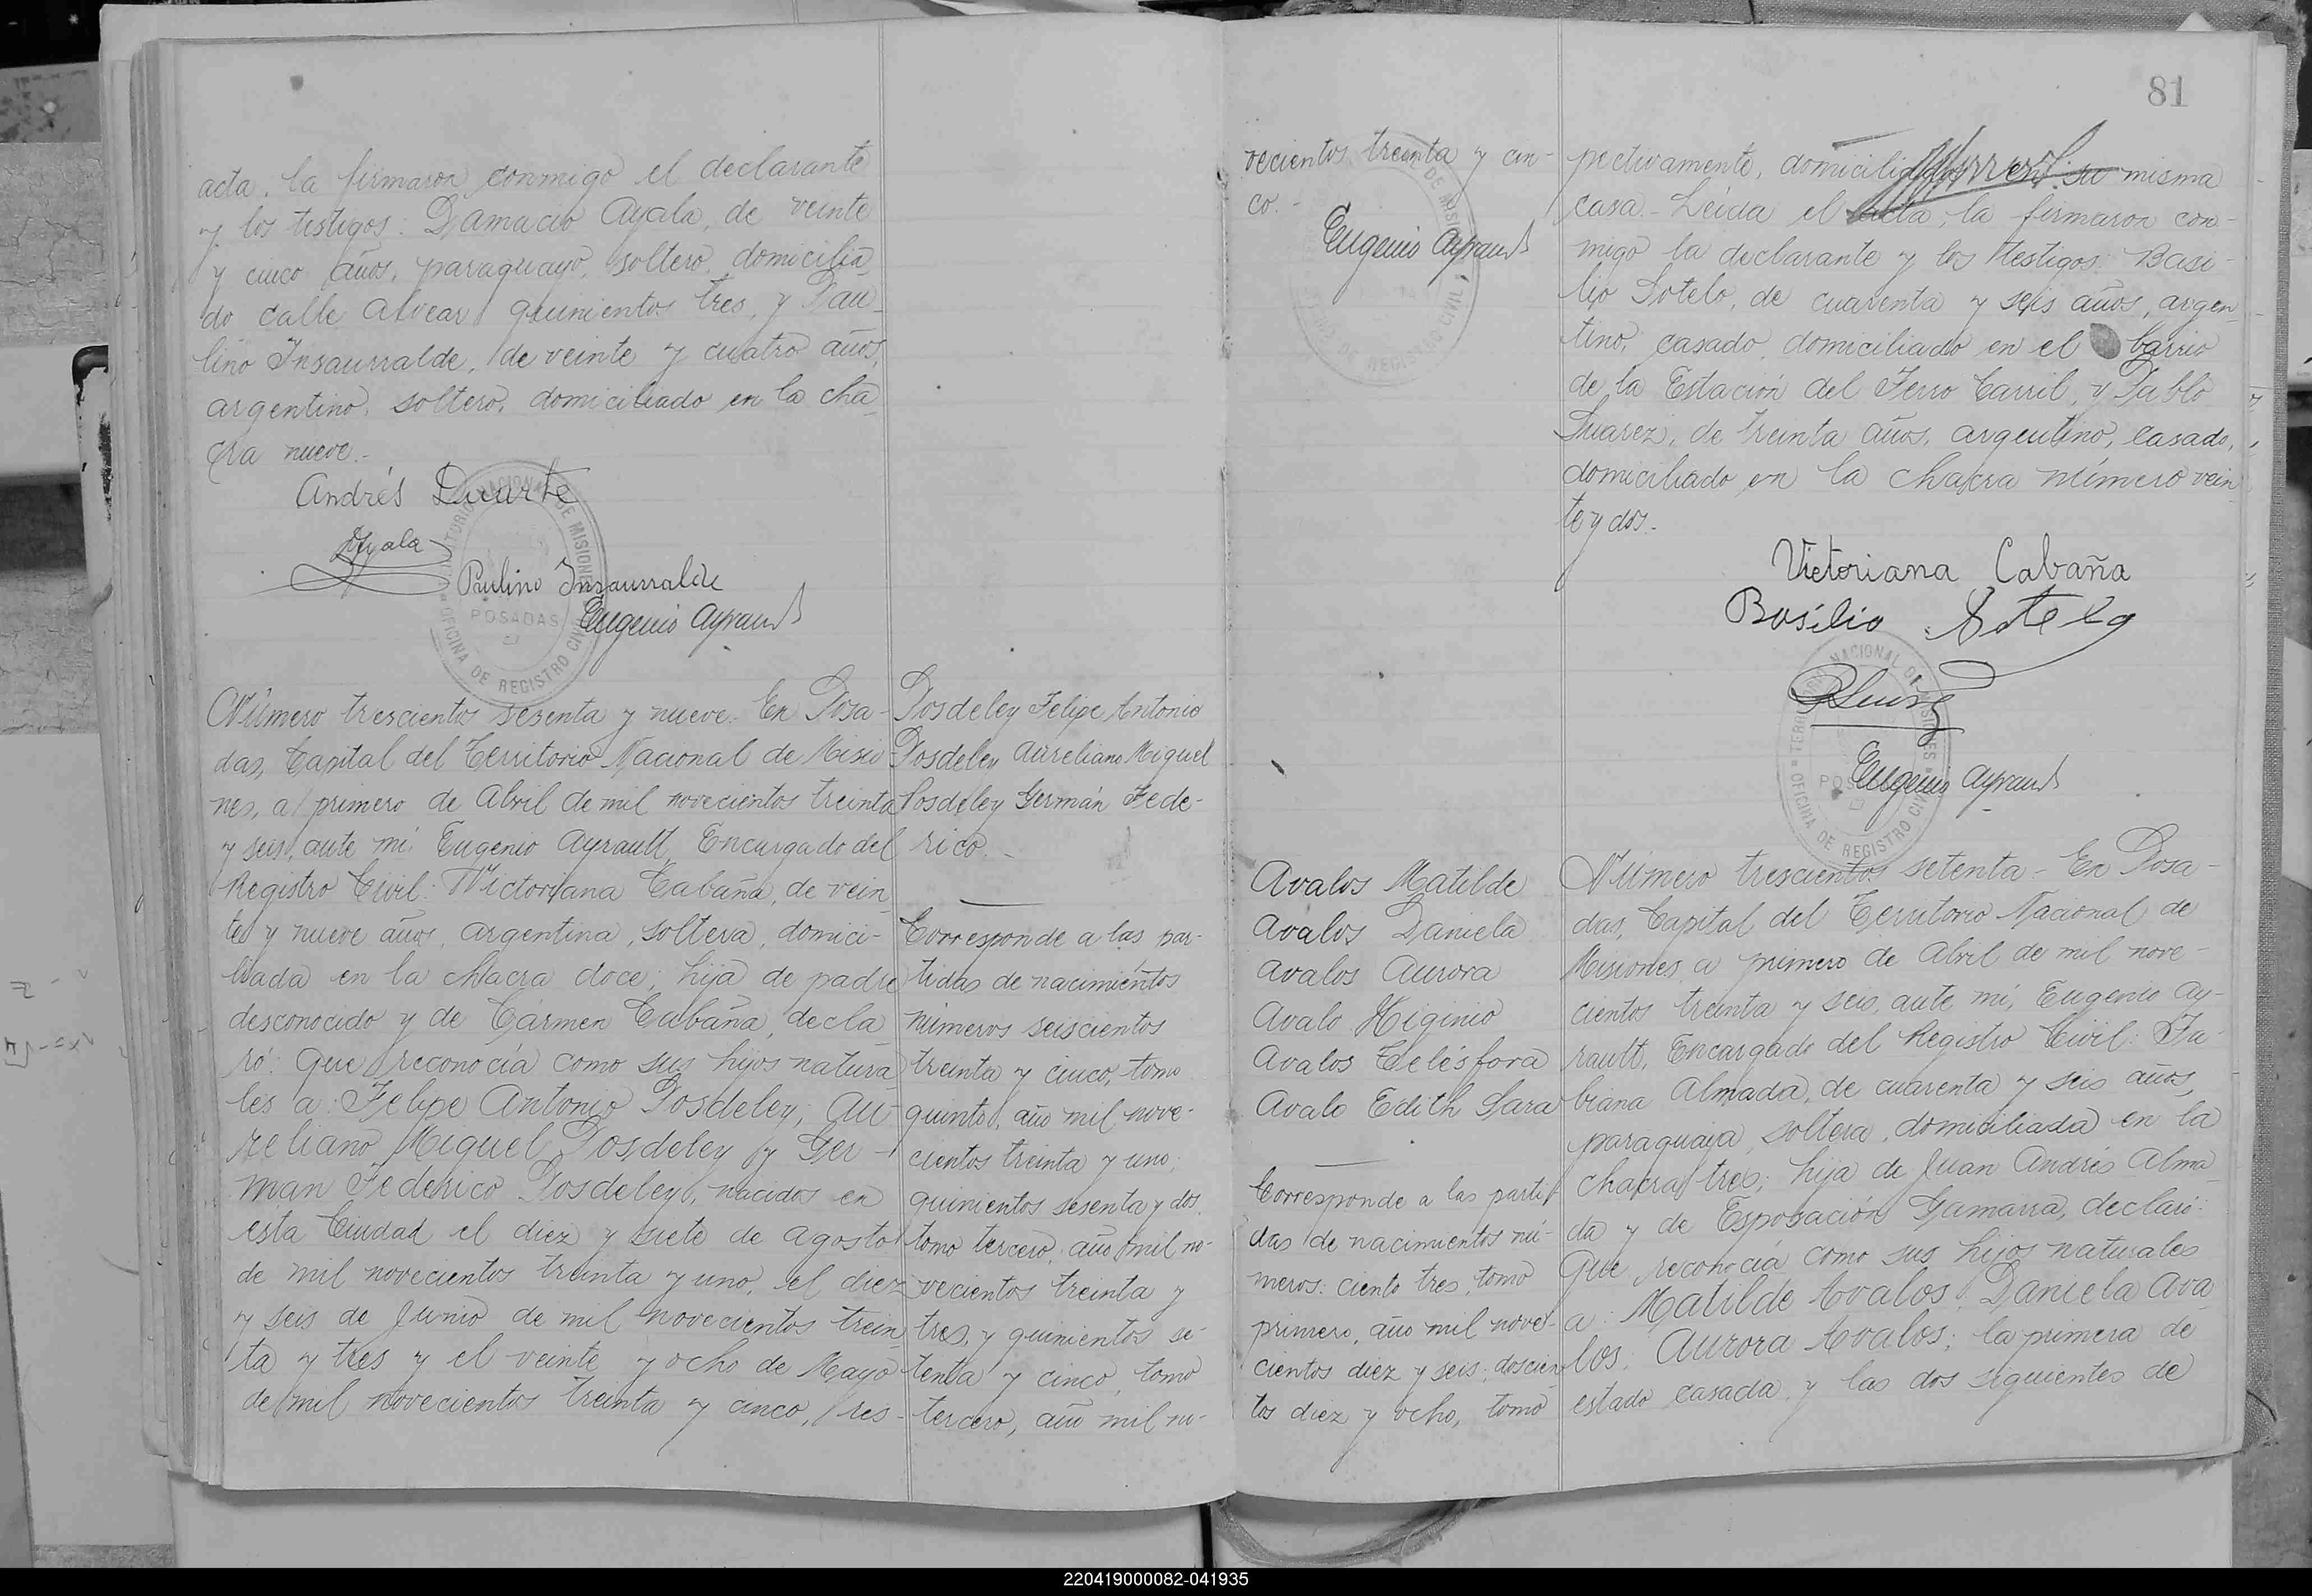 acta, la firmaron conmigo el declarante
y los testigos: Damacio Ayala, de veinte
y cinco años, paraguayo, soltero, domicilia
do calle Alvear quinientos tres, y Pau
lino Insaurralde, de veinte y cuatro años,
argentino, soltero, domiciliado en la cha
cra nueve.-
Andrés Duarte
DAyala
Paulino Insaurralde
Eugenio Ayrault
TERRITORIO NACIONAL DE MISIONES
POSADAS
OFICINA DE REGISTRO CIVIL
Número trescientos sesenta y nueve. En Posa-
das, Capital del Territorio Nacional de Misio
nes, a primero de Abril de mil novecientos treinta
y seis, ante mi: Eugenio Ayrault, Encargado del
Registro Civil: Victoriana Cabaña, de vein
te y nueve años, argentina, soltera, domici-
liada en la chacra doce; hija de padre
desconocido y de Cármen Cabaña, decla
ró: Que reconocía como sus hijos natura
les a: Felipe Antonio Posdeley, Au
reliano Miguel Posdeley y Ger-
man Federico Posdeley, nacidos en
esta Ciudad el diez y siete de Agosto
de mil novecientos treinta y uno, el diez
y seis de Junio de mil novecientos trein
ta y tres y el veinte y ocho de Mayo
de mil novecientos treinta y cinco, res-
Posdeley Felipe Antonio
Posdeley Aureliano Miguel
Posdeley Germán Fede-
rico.-
Corresponde a las par-
tidas de nacimientos
números seiscientos
treinta y cinco, tomo
quinto, año mil nove-
cientos treinta y uno;
quinientos sesenta y dos,
tomo tercero, año mil no-
vecientos treinta y
tres, y quinientos se-
tenta y cinco, tomo
tercero, año mil no-
81
vecientos treinta y cin-
co.-
Eugenio Ayrault
OFICINA DE REGISTRO CIVIL
pectivamente, domiciliados en su misma
casa.- Leida el acta, la firmaron con-
migo la declarante y los testigos: Basi-
lio Sotelo, de cuarenta y seis años, argen
tino, casado, domiciliado en el barrio
de la Estación del Ferro Carril, y Pablo
Suarez, de treinta años, argentino, casado,
domiciliado en la chacra número vein
te y dos.-
Victoriana Cabaña
Basilio Sotelo
Eugenio Ayrault
TERRITORIO NACIONAL DE MISIONES
POSADAS
OFICINA DE REGISTRO CIVIL
Avalos Matilde
Avalos Daniela
Avalos Aurora
Avalo Higinio
Avalos Telésfora
Avalo Edith Sara
Corresponde a las parti
das de nacimientos nú-
meros: ciento tres, tomo
primero, año mil nove-
cientos diez y seis; doscien
tos diez y ocho, tomo
Número trescientos setenta.- En Posa-
das, Capital del Territorio Nacional de
Misiones, a primero de Abril de mil nove-
cientos treinta y seis, ante mí, Eugenio Ay-
rault, Encargado del Registro Civil: Fa-
biana Almada, de cuarenta y seis años,
paraguaya, soltera, domiciliada en la
chacra tres; hija de Juan Andrés Alma
da y de Esposación Gamarra, declaró:
Que reconocía como sus hijos naturales
a: Matilde Avalos, Daniela Ava
los, Aurora Avalos; la primera de
estado casada y las dos siguientes de
220419000082-041935